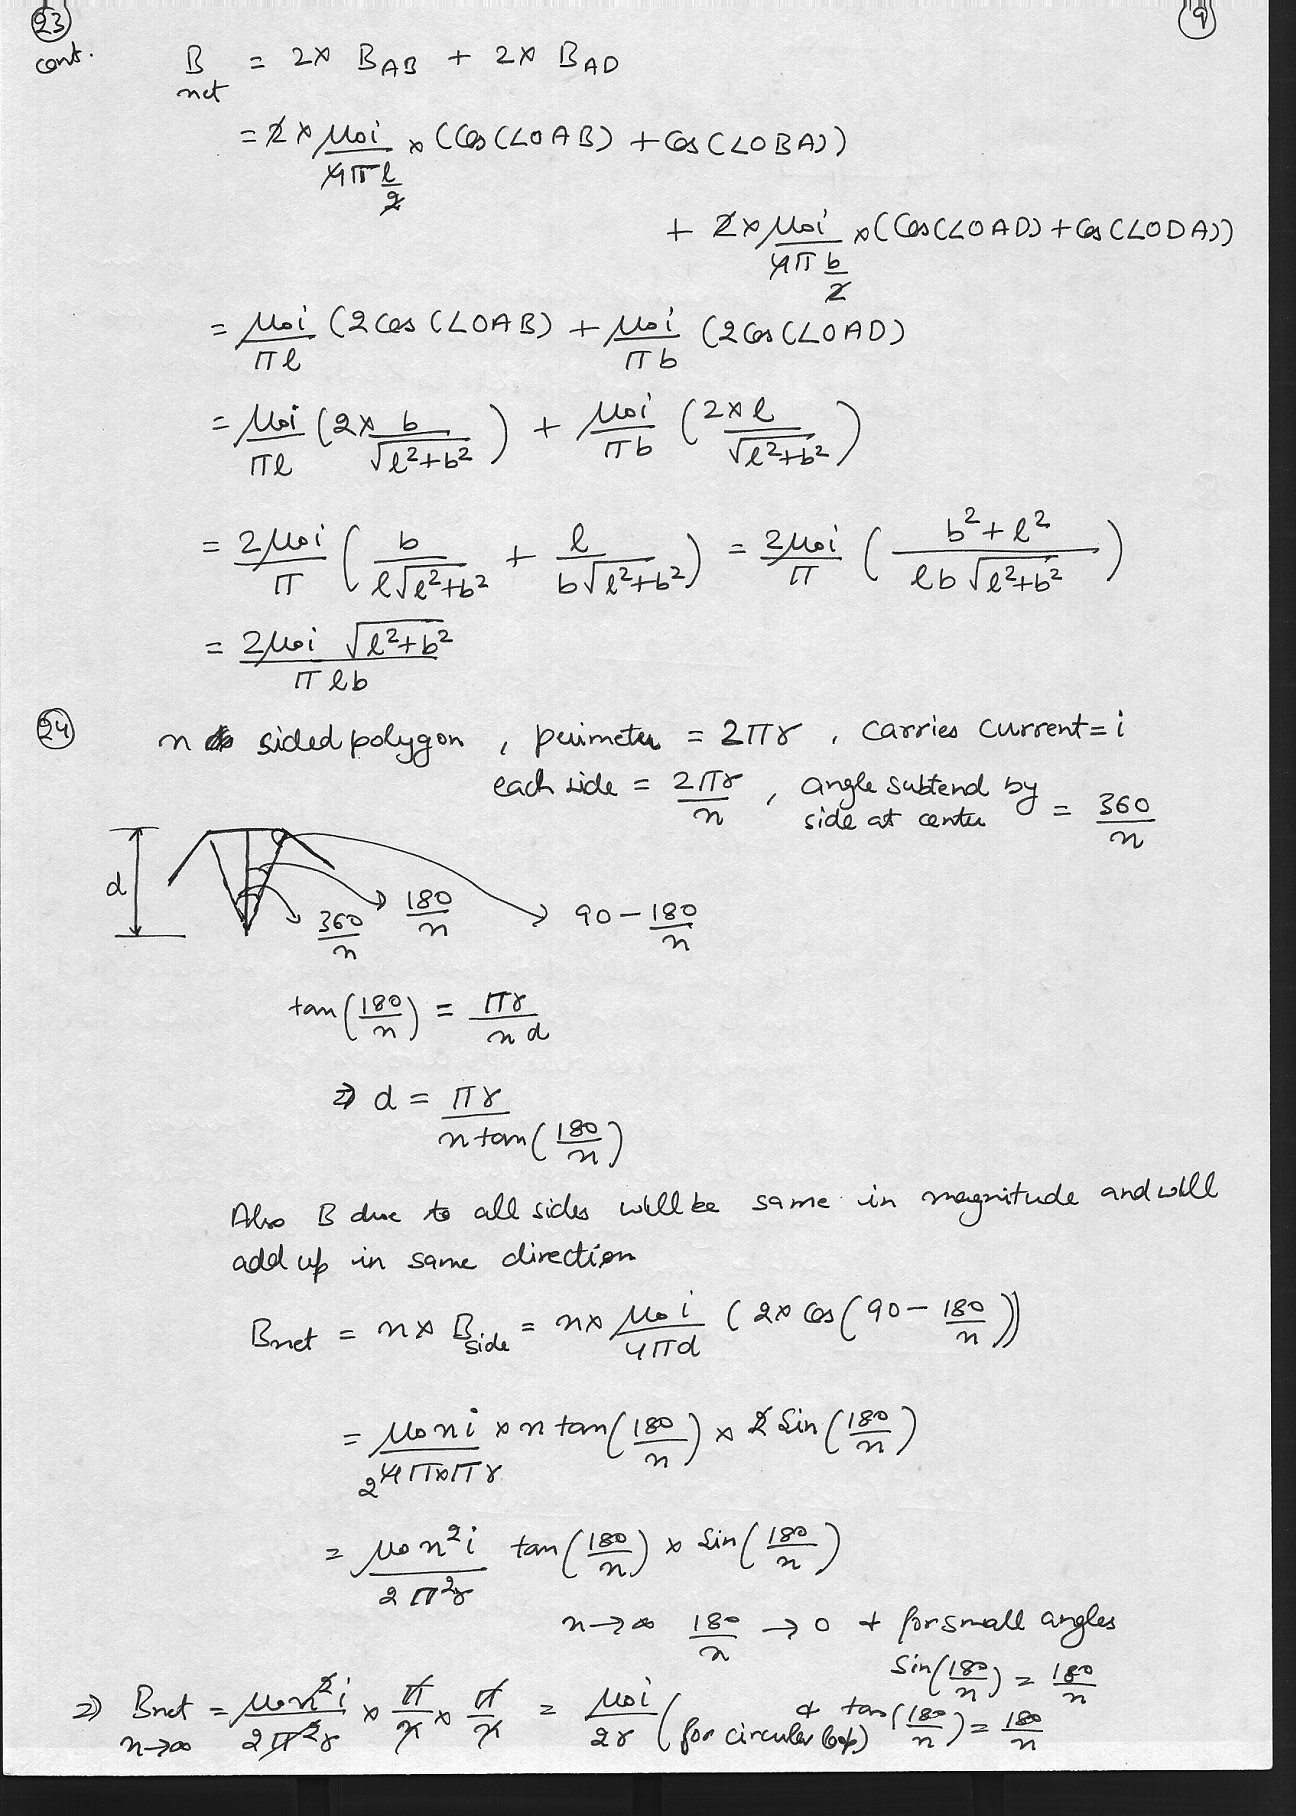 23 cont.
9
B net = 2 x B_AB + 2 x B_AD
= 2 x μ0i/(4π l/2) x (Cos(∠OAB) + Cos(∠OBA))
+ 2 x μ0i/(4π b/2) x (Cos(∠OAD) + Cos(∠ODA))
= μ0i/πl (2 Cos(∠OAB) + μ0i/πb (2 Cos(∠OAD)
= μ0i/πl (2 x b/√(l²+b²)) + μ0i/πb (2 x l/√(l²+b²))
= 2μ0i/π (b/(l√(l²+b²)) + l/(b√(l²+b²))) = 2μ0i/π ((b²+l²)/(lb√(l²+b²)))
= 2μ0i √(l²+b²)/(π lb)
24 n sided polygon, perimeter = 2πr, carries current = i
each side = 2πr/n, angle subtend by side at center = 360/n
d
360/n
180/n
90 - 180/n
tan(180/n) = πr/(n d)
⇒ d = πr/(n tan(180/n))
Also B due to all sides will be same in magnitude and will
add up in same direction
Bnet = n x B_side = n x μ0 i/(4πd) (2 x Cos(90 - 180/n))
= μ0 n i/(4π x πr) x n tan(180/n) x 2 Sin(180/n)
2
= μ0 n² i/(2π²r) tan(180/n) x Sin(180/n)
n→∞ 180/n → 0 & for small angles
Sin(180/n) = 180/n
& tan(180/n) = 180/n
⇒ Bnet n→∞ = μ0 n² i/(2π²r) x π/n x π/n = μ0i/2r (for circular loop)